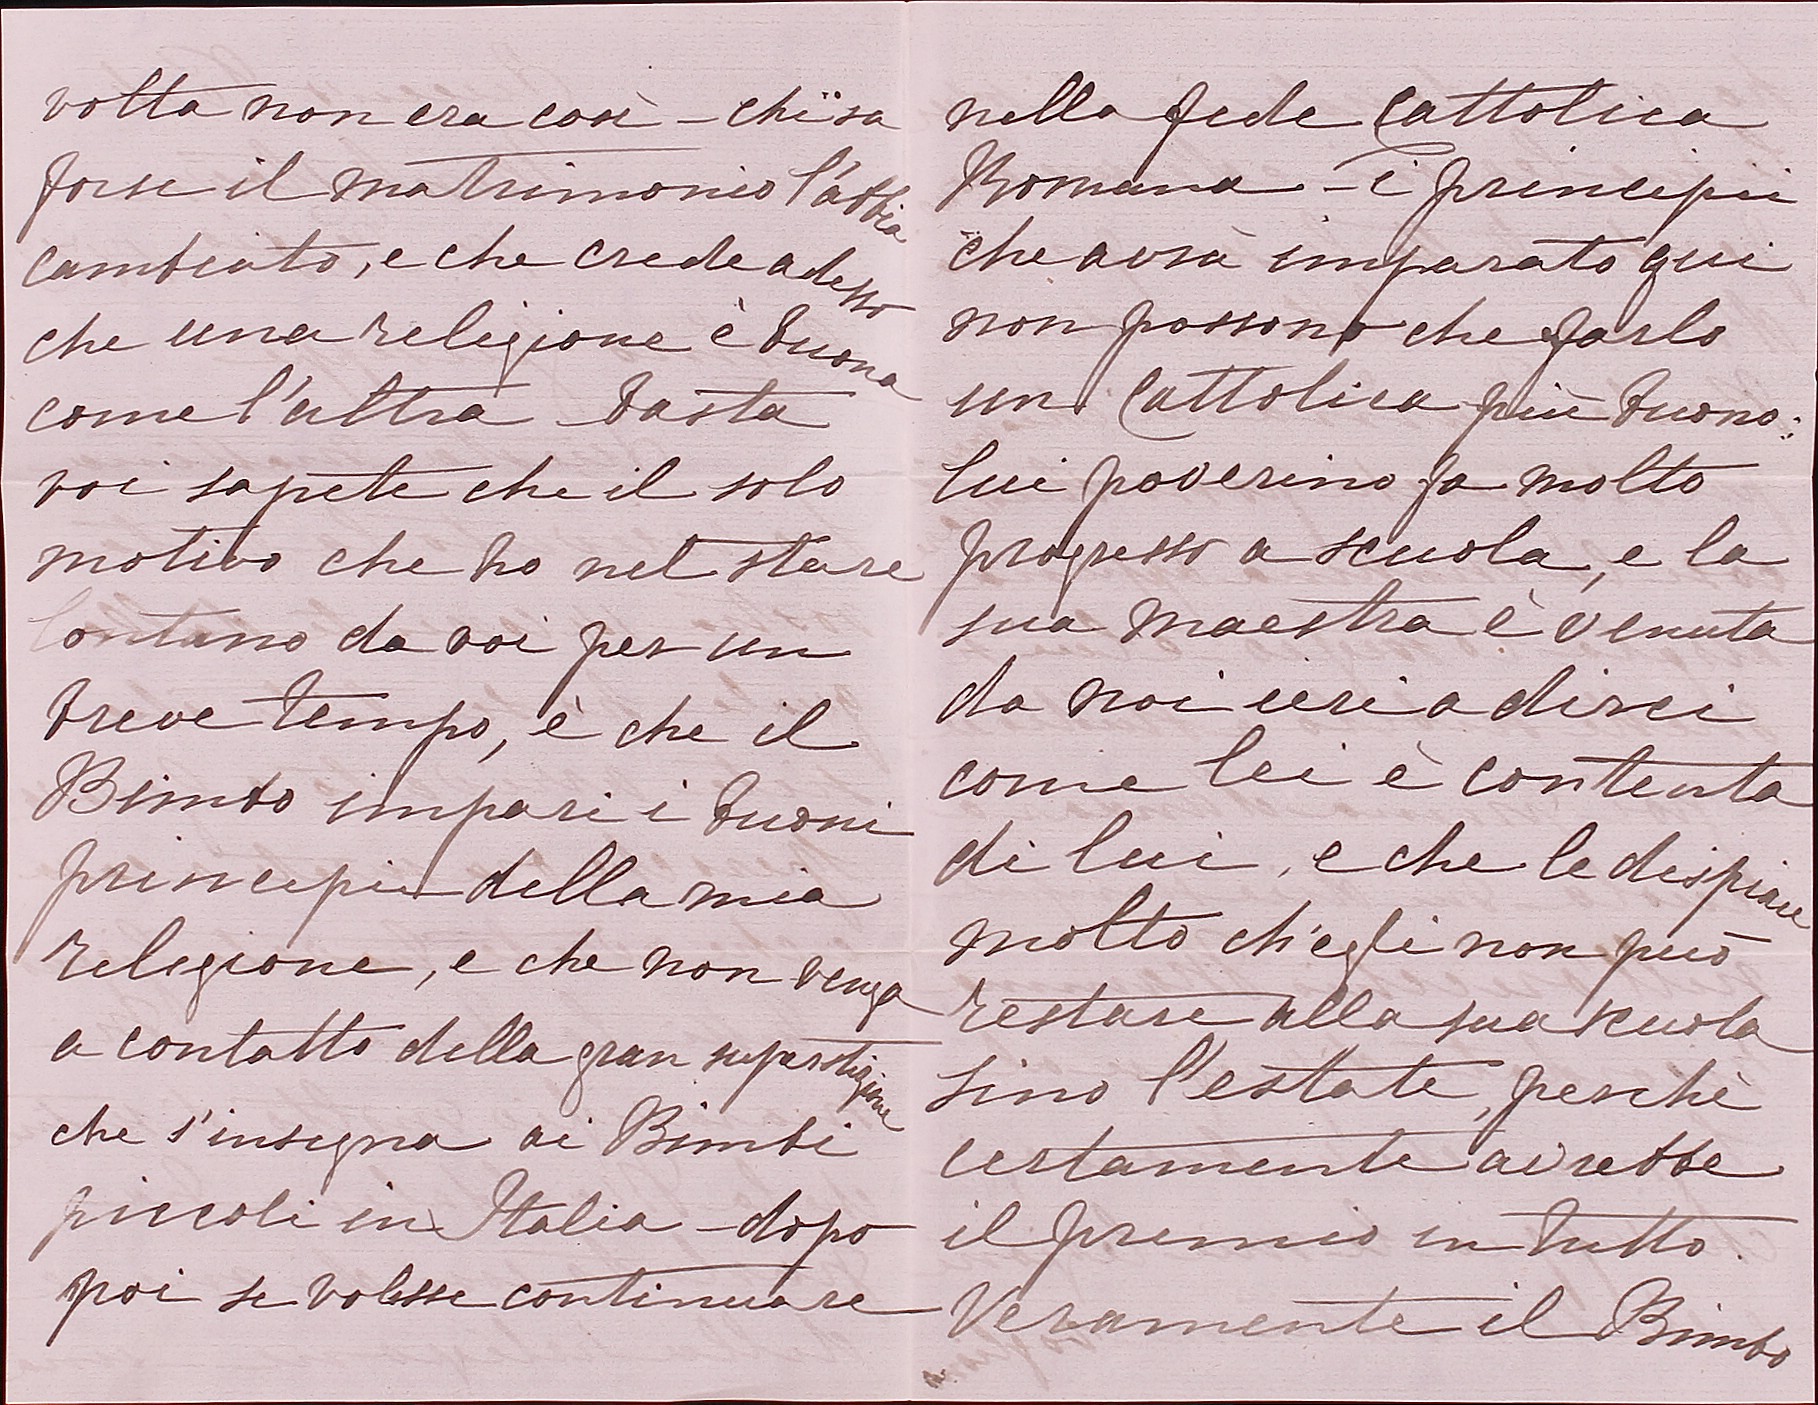 volta non era così – chi sa
forse il matrimonio l'abbia
cambiato, e che crede adesso
che una religione è buona
come l'altra – basta
voi sapete che il solo
motivo che ho nel stare
lontano da voi per un
breve tempo, è che il
Bimbo impari i buoni
principii della mia
religione, e che non venga
a contatto della gran superstizione
che s'insegna ai Bimbi
piccoli in Italia – dopo
poi se volesse continuare
nella fede Cattolica
Romana – i principii
che avrà imparato qui
non possono che farlo
un Cattolico più buono:
lui poverino fa molto
progresso a scuola, e la
sua maestra è venuta
da noi ieri a dirci
come lei è contenta
di lui, e che le dispiace
molto ch'egli non può
restare alla sua scuola
sino l'estate, perchè
certamente avrebbe
il premio in tutto.
Veramente il Bimbo